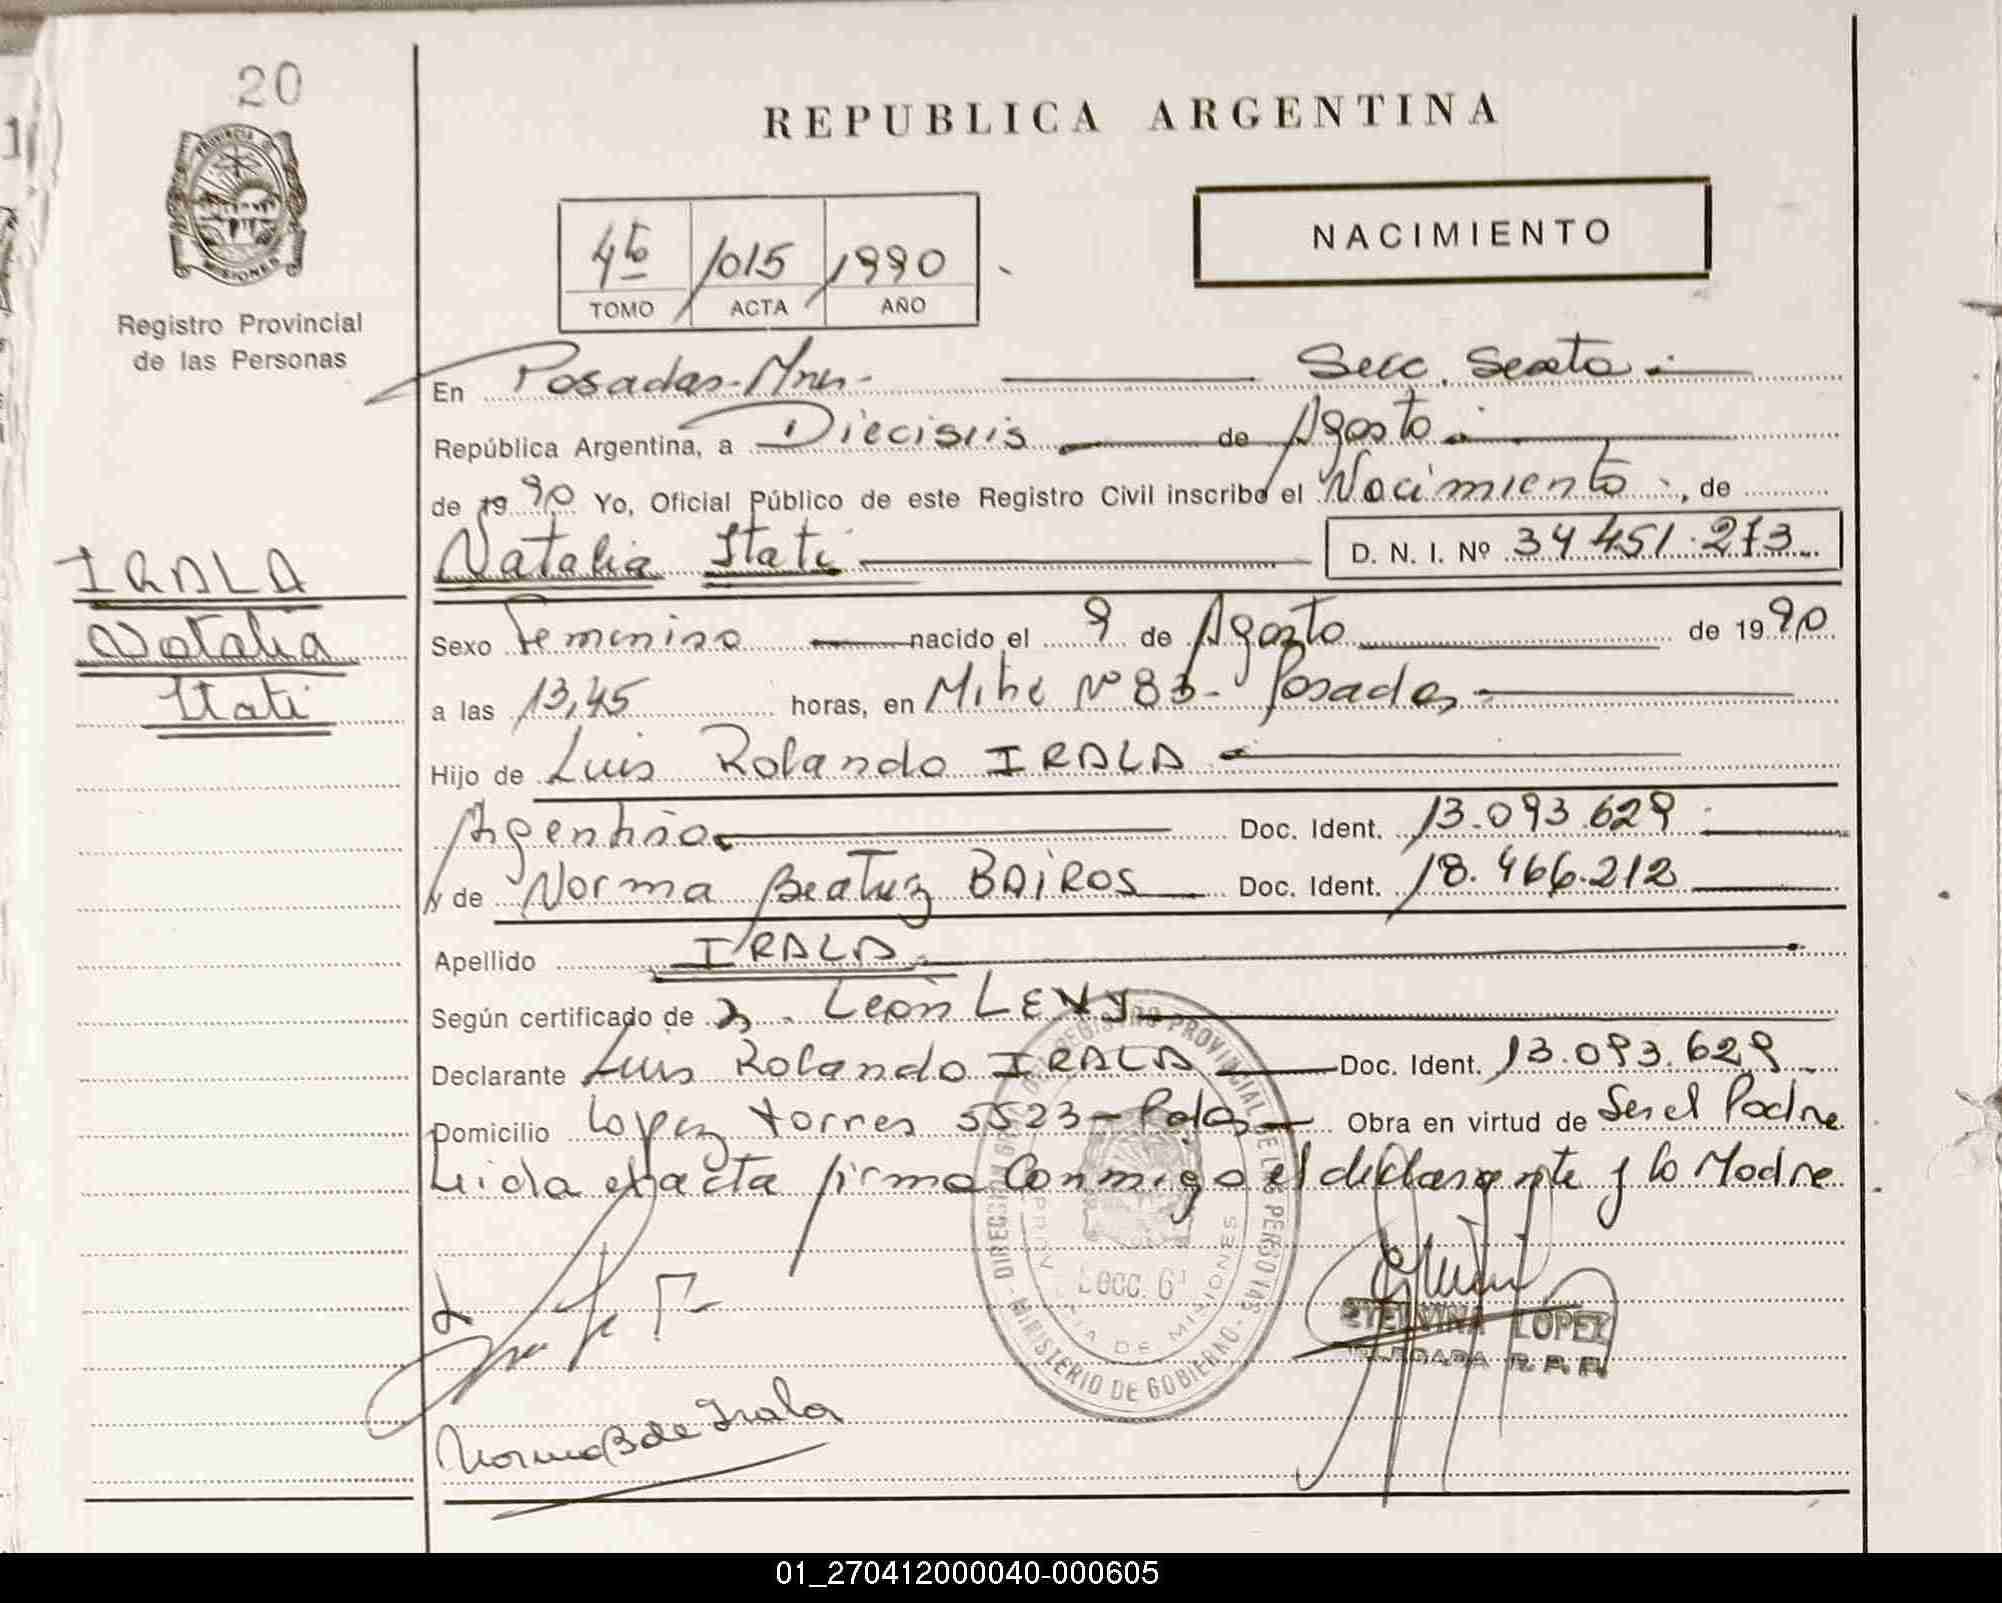 20
PROVINCIA
MISIONES
Registro Provincial
de las Personas
REPUBLICA ARGENTINA
NACIMIENTO
4to 1015 1990
TOMO ACTA AÑO
En Posadas-Mnes- Secc. Sexta
República Argentina, a Dieciseis de Agosto
de 1990 Yo, Oficial Público de este Registro Civil inscribo el Nacimiento, de
Natalia Itati D. N. I. Nº 34 451.273
IRALA
Natalia
Itati
Sexo Femenino nacido el 9 de Agosto de 1990
a las 13,45 horas, en Mitre Nº 83- Posadas
Hijo de Luis Rolando IRALA
Argentino Doc. Ident. 13.093.629
y de Norma Beatriz BAIROS Doc. Ident. 18.466.212
Apellido IRALA
Según certificado de Dr. León LEVY
Declarante Luis Rolando IRALA Doc. Ident. 13.093.629
Domicilio Lopez torres 5523-Pdas Obra en virtud de Ser el Padre
Leida el acta firma Conmigo el declarante y la Madre
MINISTERIO DE GOBIERNO
DE MISIONES
LOPEZ
R. P. P.
Norma B de Irala
01_270412000040-000605